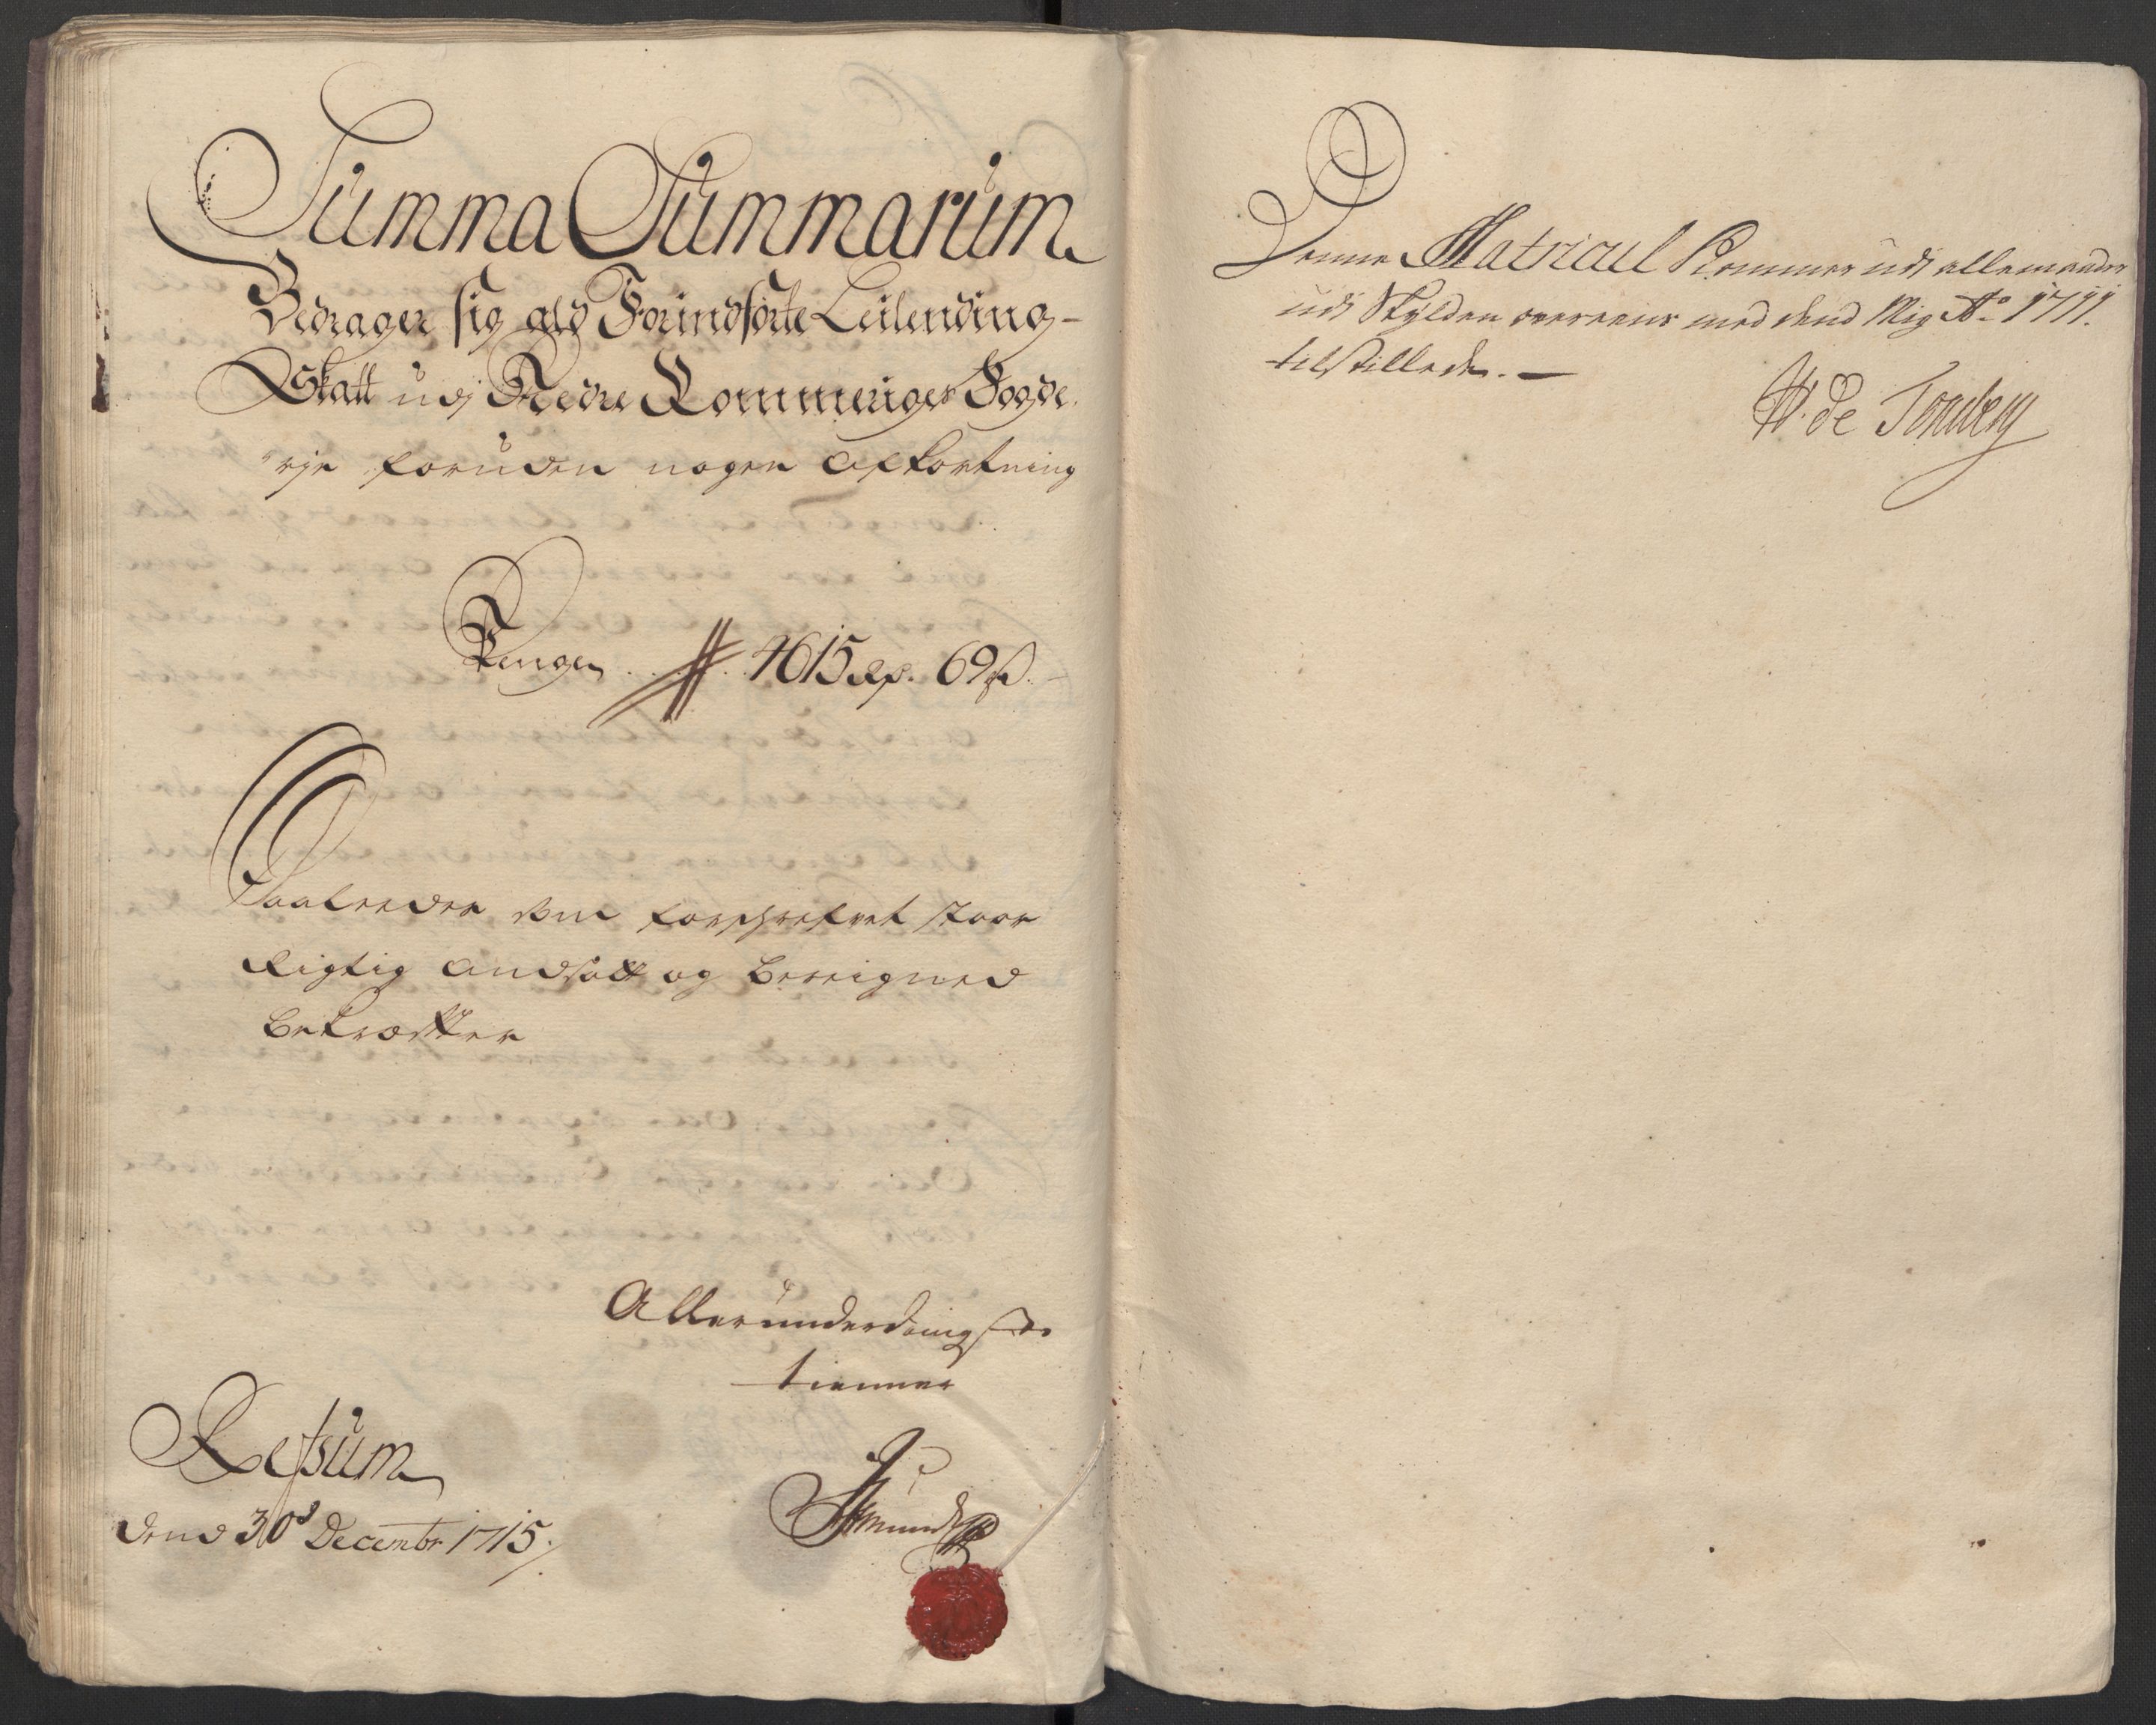 Summa Summarum
Bedrager sig ald Forindførte Leilending-
Skatt udj Nedre Rommeriges Fogde-
rje foruden nogen Afkortning
Penger 4615 Rdr. 69 ß.
Saaleedes som forschrefvet staar
Rigtig andsatt og bereigned
bekræfter
Allerunderdanigste
tienner
Refsum
dend 30d Decembr 1715.
Denne Matricul Kommer udi alle maader
udi Skylden overeens med dend Mig Ao 1711.
tilstillede. —
W. de Tonsberg